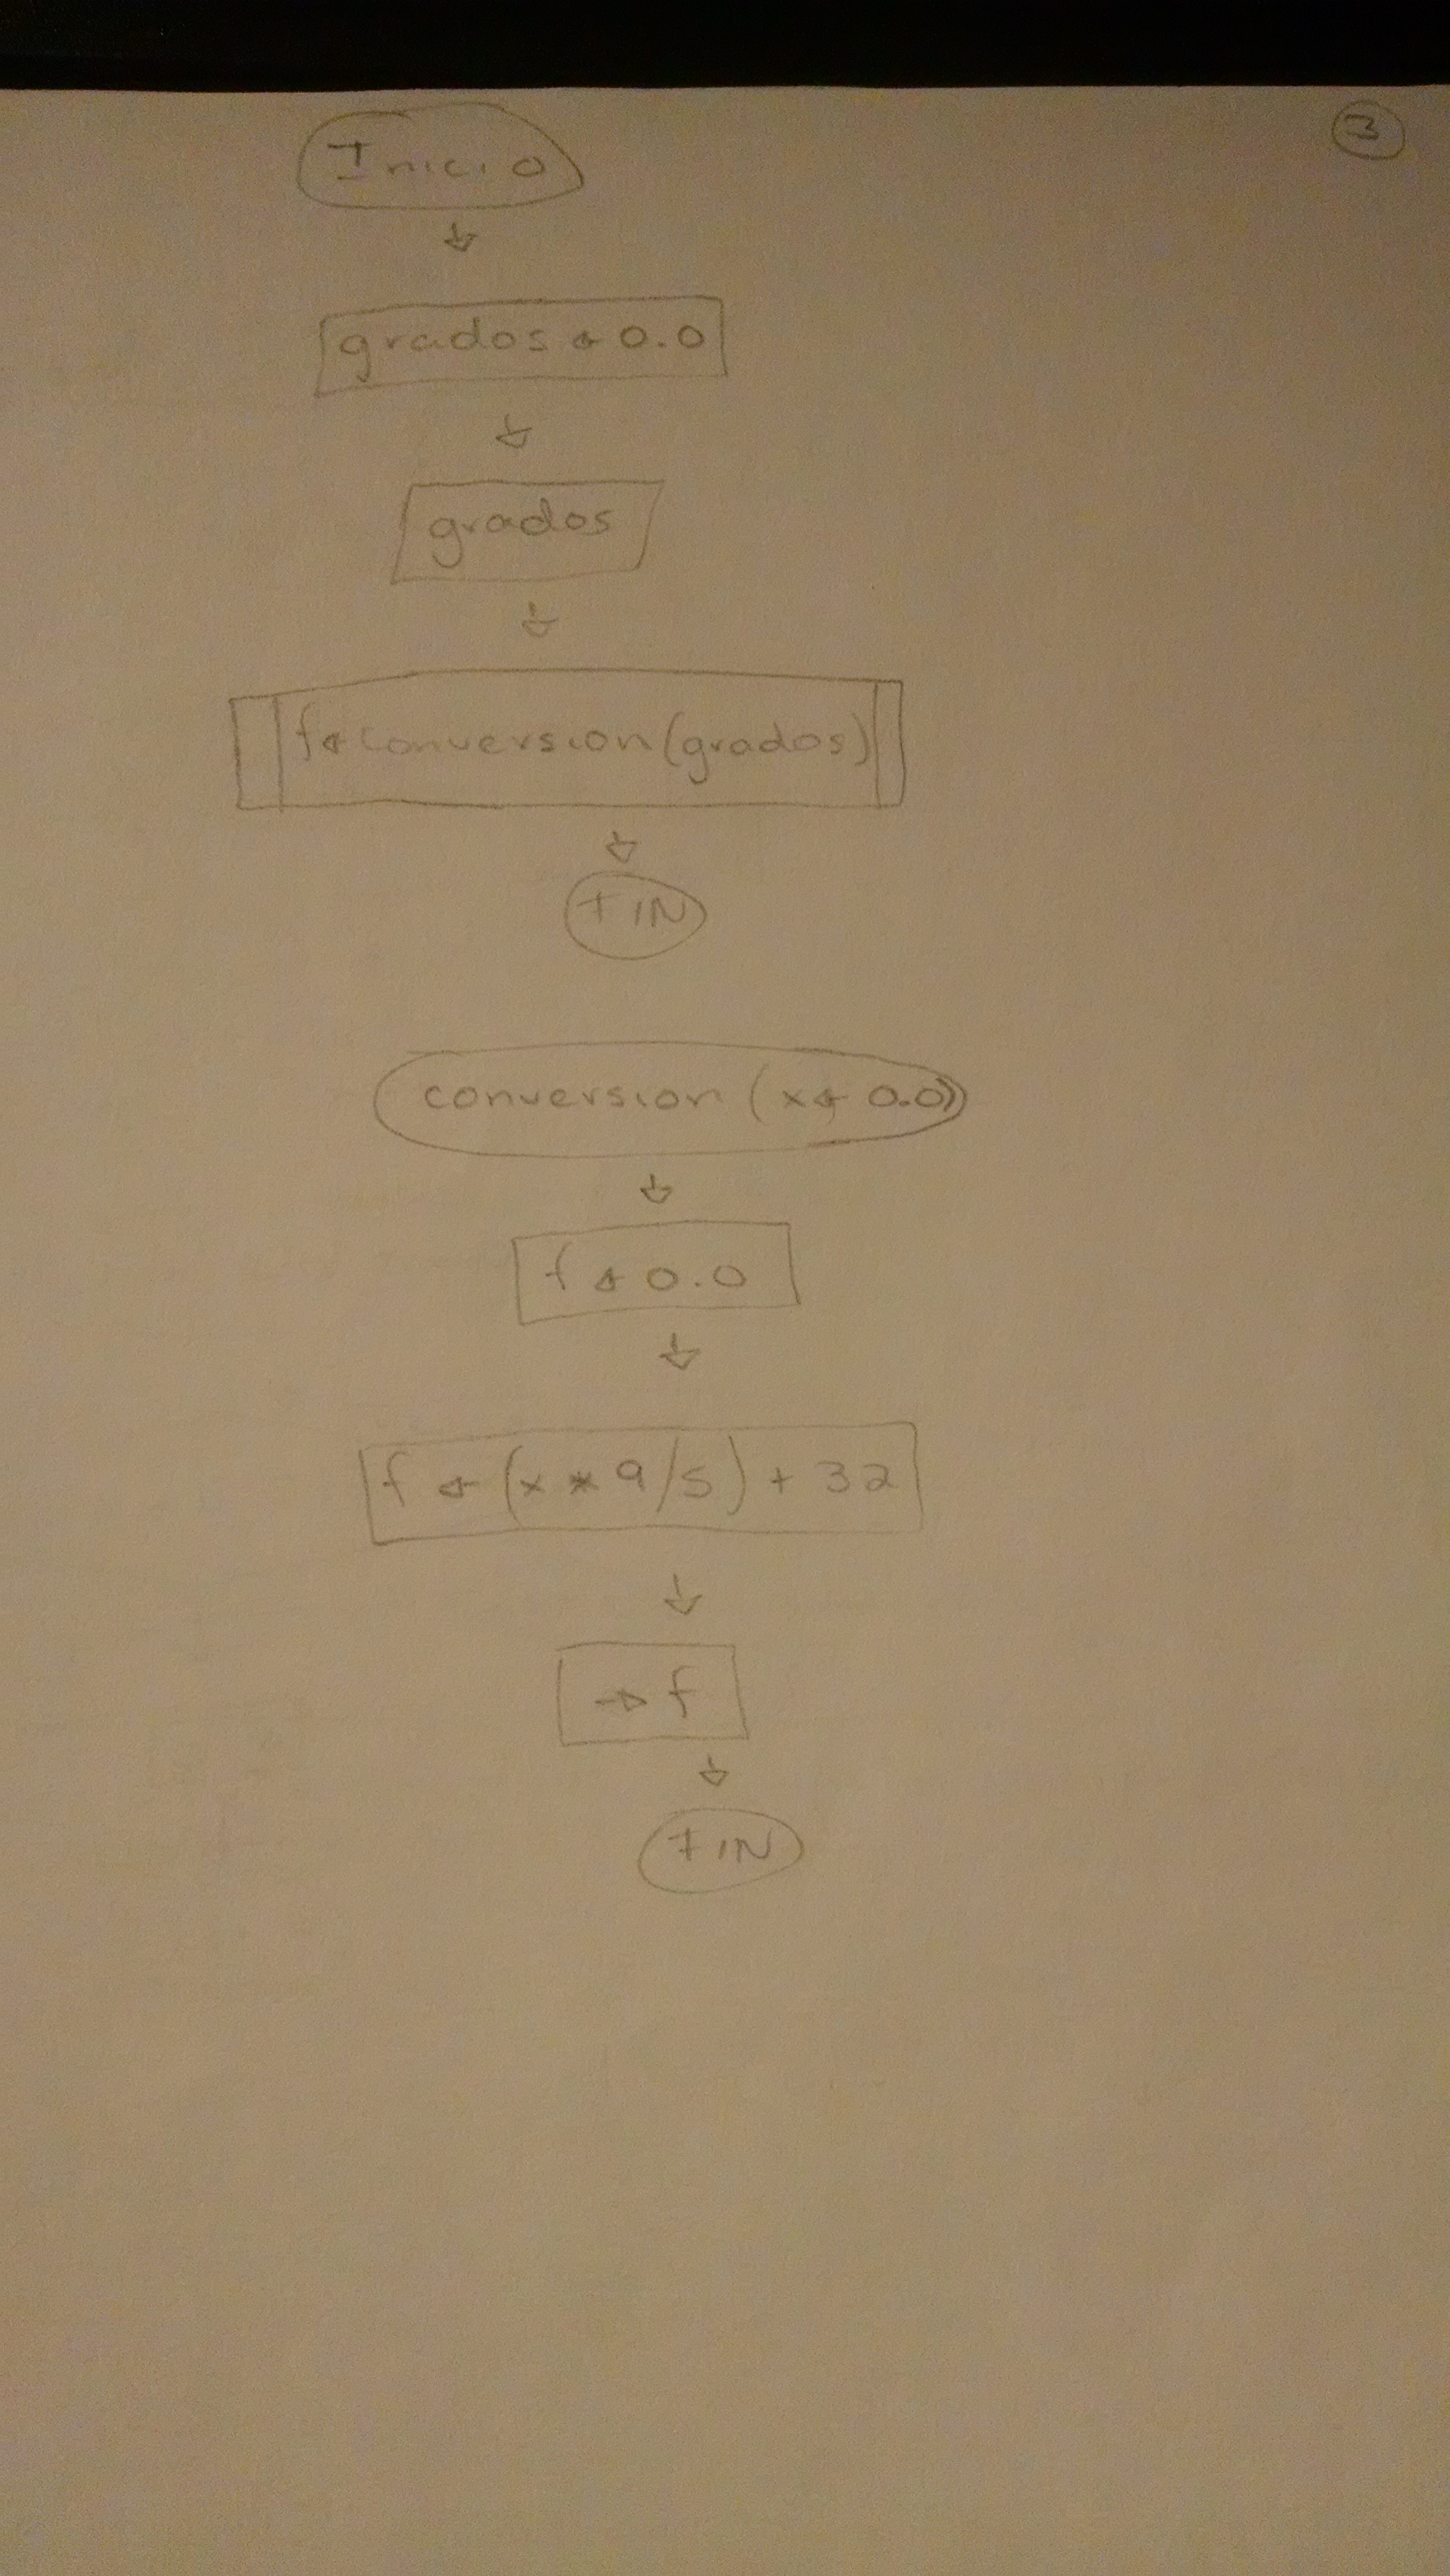 3
Inicio
grados ← 0.0
grados
f ← conversion(grados)
FIN
conversion (x ← 0.0)
f ← 0.0
f ← (x * 9/5) + 32
→ f
FIN